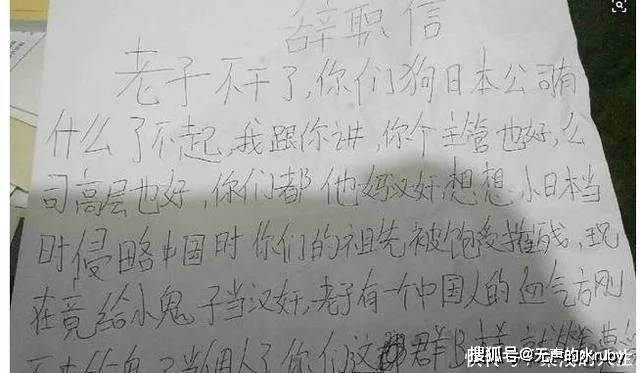 辞职信
老子不干了,你们狗日本公司有
什么了不起,我跟你讲,你个主管也好,公
司高层也好,你们都他妈汉奸,想想小日本当
时侵略中国时你们的祖先被饱受摧残,现
在竟给小鬼子当汉奸,老子有一个中国人的血气方刚
人了你们这群B样
搜狐号@无声的水ruby